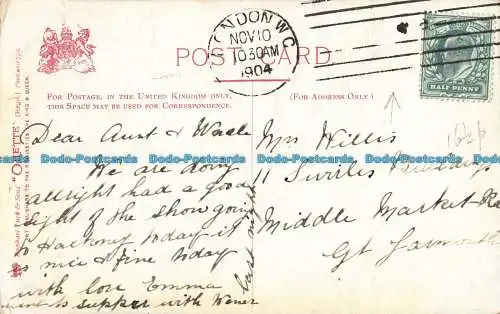 LONDON. W.C.
NOV 10
10 30 AM
1904
HALF PENNY
POST CARD
FOR POSTAGE, IN THE UNITED KINGDOM ONLY,
THIS SPACE MAY BE USED FOR CORRESPONDENCE.
(FOR ADDRESS ONLY)
"OILETTE"
Dear Aunt &
We are doing
allright had a good
sight of the show going
to Hackney today it
is nice & fine today
with love Emma
to supper with
last night
Mrs Willis
11
Middle Market
Gt Yarmouth
Dodo-Postcards Dodo-Postcards Dodo-Postcards Dodo-Postcards